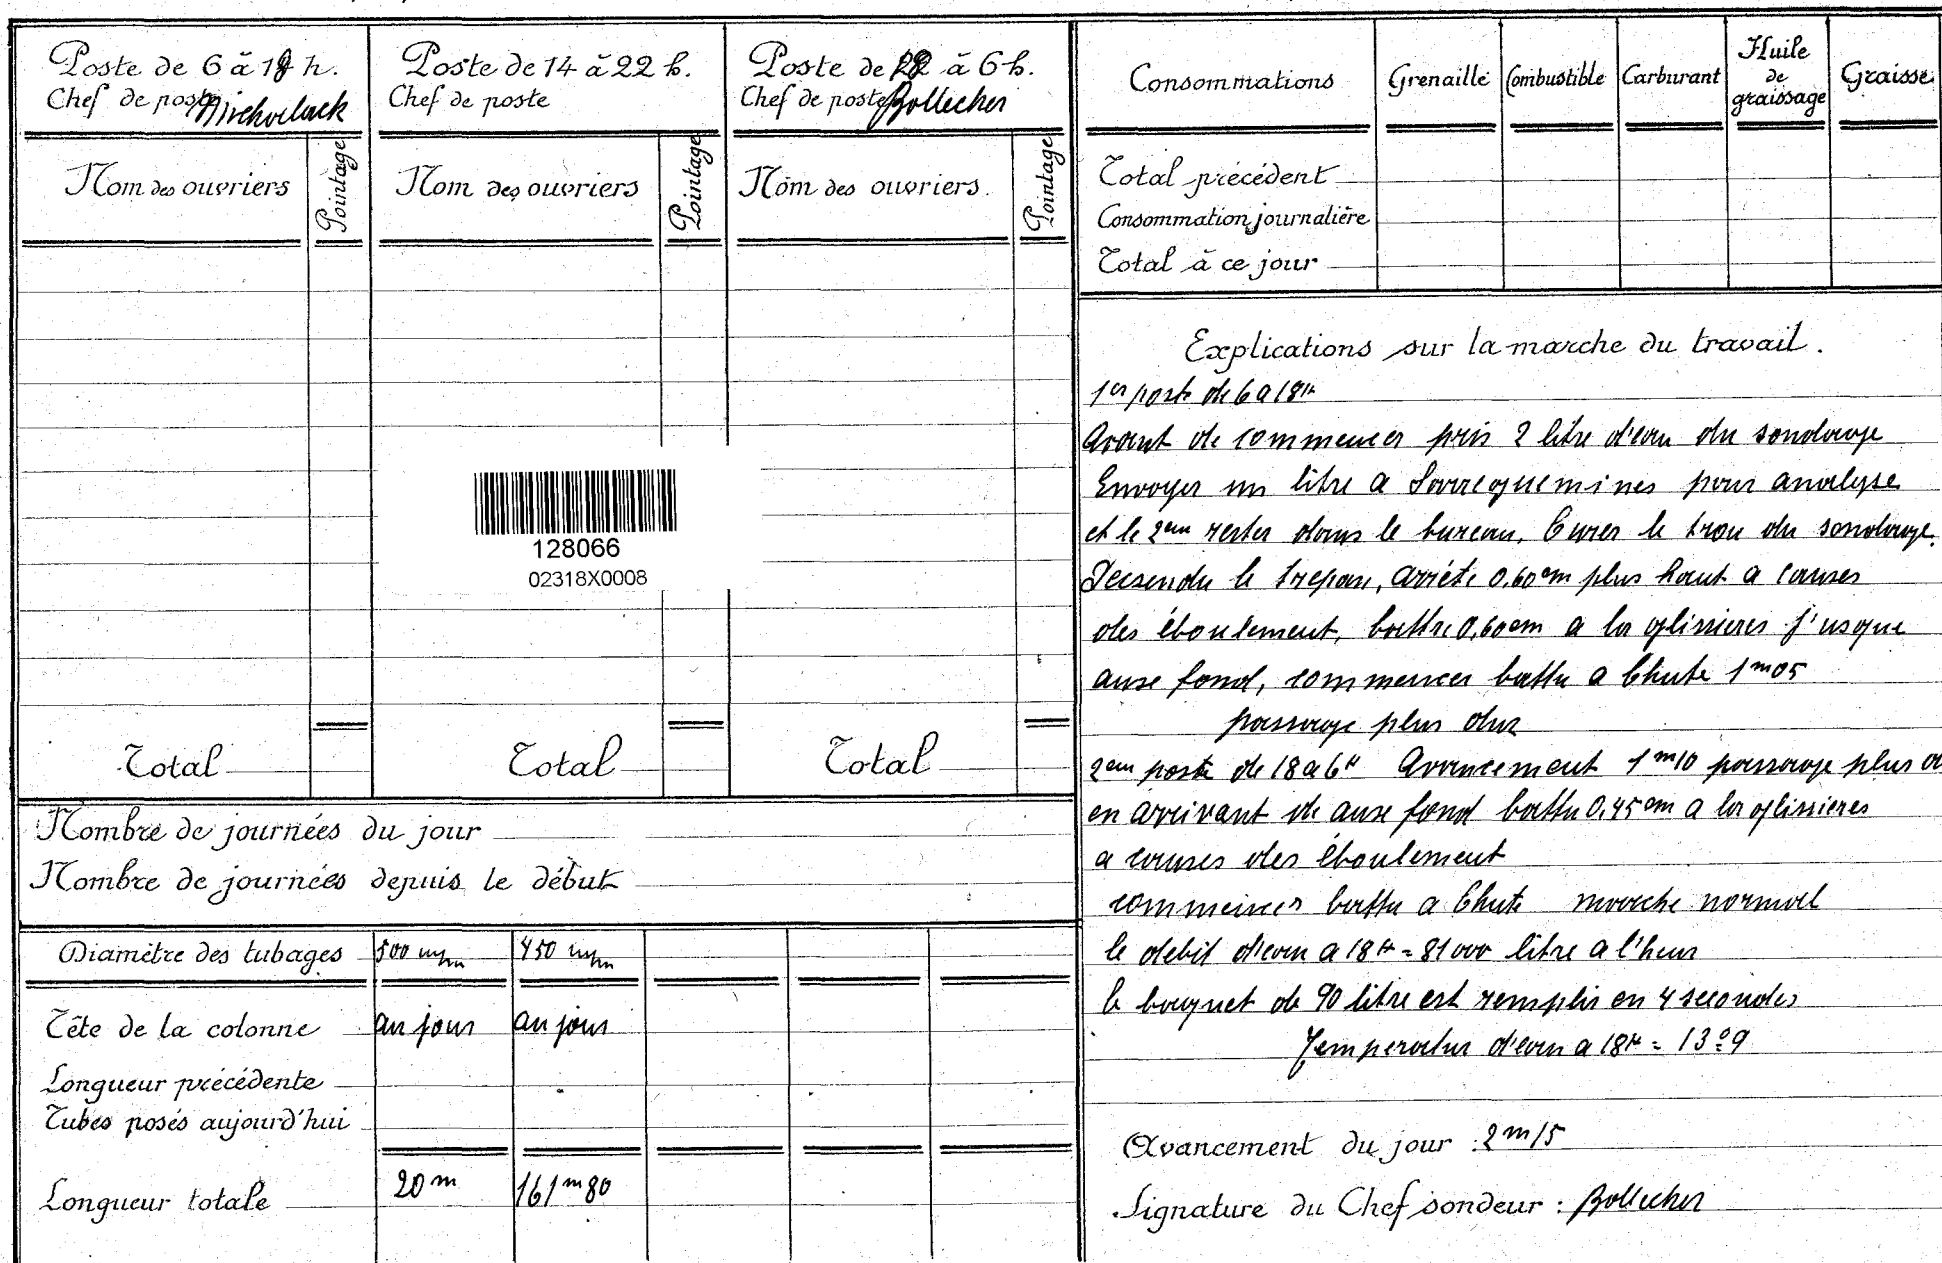 Poste de 6 à 18 h.
Chef de poste
Nom des ouvriers
Pointage
Total
Poste de 14 à 22 h.
Chef de poste
Nom des ouvriers
Pointage
Total
Poste de à 6 h.
Chef de poste Bollecher
Nom des ouvriers.
Pointage
Total
128066
02318X0008
Nombre de journées du jour
Nombre de journées depuis le début
Diamètre des tubages 500 m/m 450 m/m
Tête de la colonne au jour au jour
Longueur précédente
Tubes posés aujourd'hui
Longueur totale 20 m 161 m 80
Consommations Grenaille Combustible Carburant Huile de graissage Graisse
Total précédent
Consommation journalière
Total à ce jour
Explications sur la marche du travail.
1er poste de 6 a 18 H
Avant de commencer pris 2 litre d'eau du sondage
Envoyer un litre a Sarreguemines pour analyse
et le 2em rester dans le bureau. Curer le trou du sondage.
Decsendu le trepan, arrêté 0.60 cm plus haut a causes
des éboulement, battre 0,60 cm a la glissieres j'usque
aux fond, commencer battu a Chute 1 m 05
passage plus dur
2em poste de 18 a 6 H Avancement 1 m 10 passage plus
en arrivant de aux fond battu 0,45 cm a la glissieres
a causes des éboulement
commencer battu a Chute marche normal
le debit d'eau a 18 H = 81000 litre a l'heur
le baquet de 90 litre est remplir en 4 secondes
Temperatur d'eau a 18 H = 13°9
Avancement du jour : 2 m 15
Signature du Chef sondeur : Bollecher